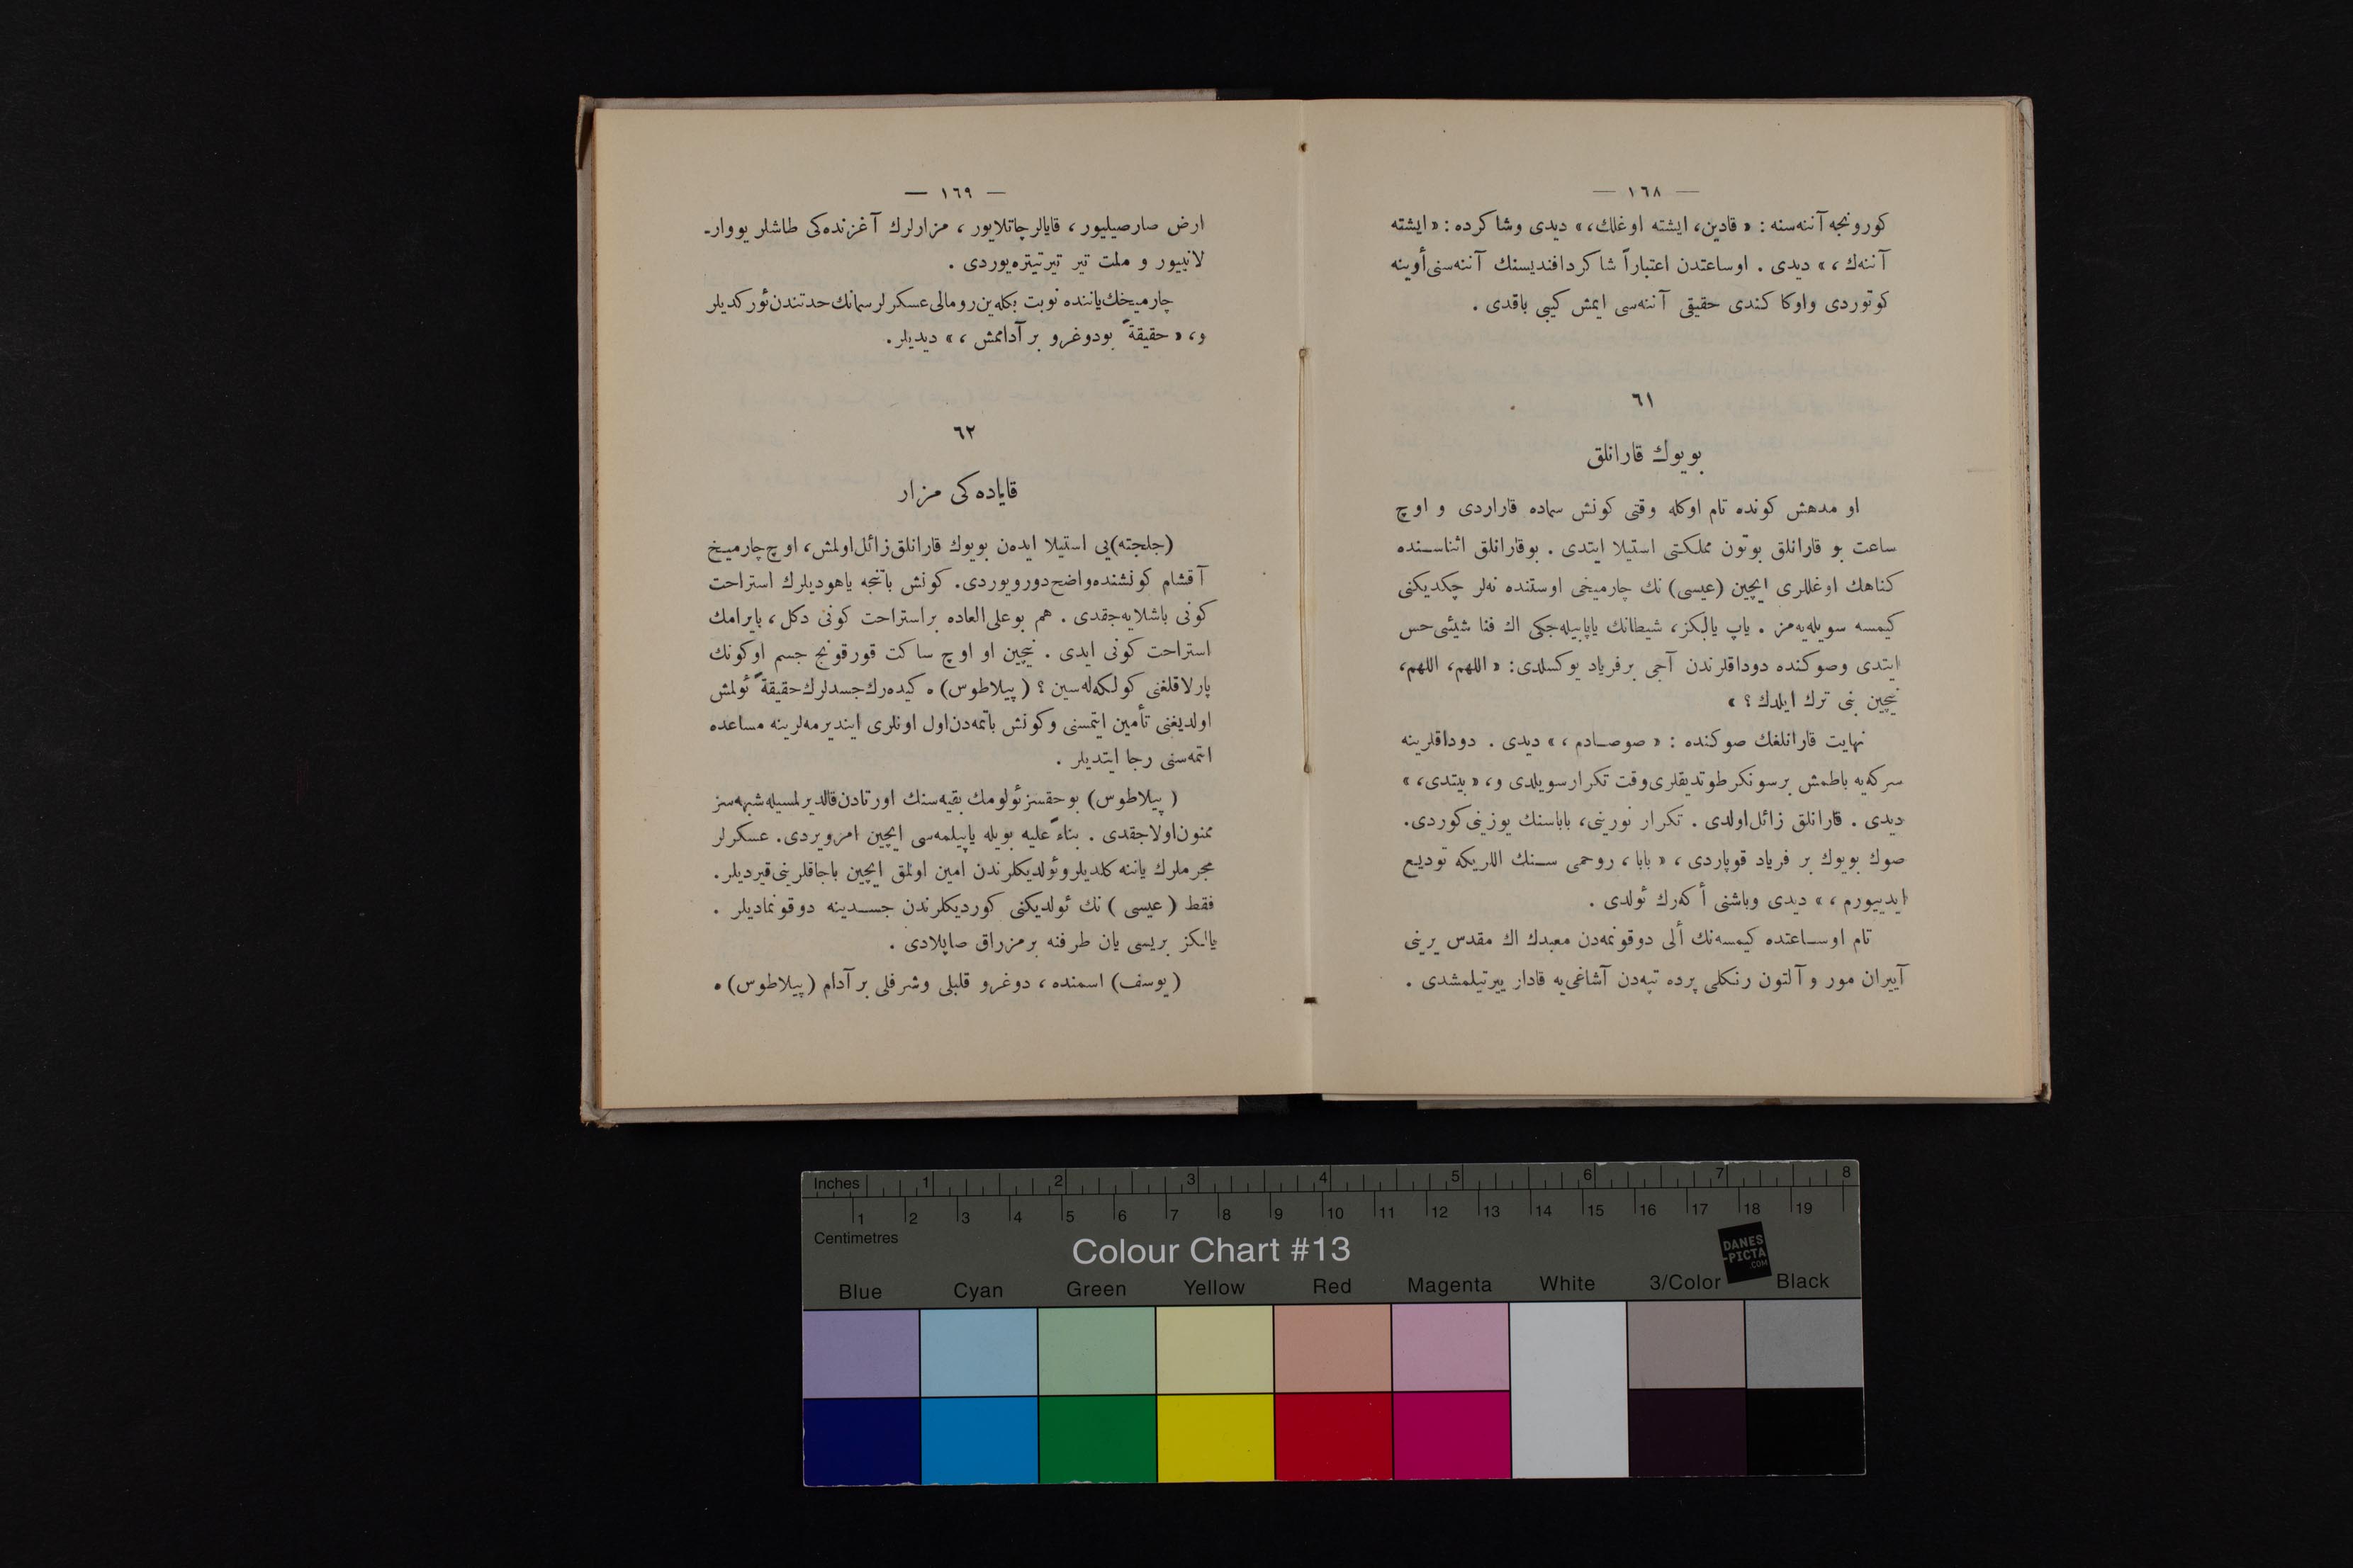 — ١٦٨ —
كورونجه آننه‌سنه : « قادين، ايشته اوغلك، » ديدى وشاكرده : « ايشته
آننه‌ك ، » ديدى . اوساعتدن اعتباراً شاكردافنديسنك آننه‌سنى أوينه
كوتوردى واوكا كندى حقيقى آننه‌سى ايمش كيبى باقدى .
٦١
بويوك قارانلق
او مدهش كونده تام اوكله وقتى كونش سماده قاراردى و اوچ
ساعت بو قارانلق بوتون مملكتى استيلا ايتدى . بوقارانلق اثناسنده
كناهك اوغللرى ايچين (عيسى) نك چارميخى اوستنده نه‌لر چكديكنى
كيمسه سويليه‌مز . ياپ يالكز، شيطانك ياپابيله‌جكى اك فنا شيئى حس
ايتدى وصوكنده دوداقلرندن آجى برفرياد يوكسلدى : « اللهم، اللهم،
نيچين بنى ترك ايلدك ؟ »
نهايت قارانلغك صوكنده : « صوصادم ، » ديدى . دوداقلرينه
سركه‌يه باطمش برسونكر طوتديقلرى وقت تكرار سويلدى و، « بيتدى، »
ديدى . قارانلق زائل اولدى . تكرار نورينى، باباسنك يوزينى كوردى .
صوك بويوك بر فرياد قوپاردى ، « بابا ، روحمى سنك اللريكه توديع
ايدييورم ، » ديدى وباشنى أكه‌رك ئولدى .
تام اوساعتده كيمسه‌نك ألى دوقونمه‌دن معبدك اك مقدس يرينى
آييران مور و آلتون رنكلى پرده تپه‌دن آشاغى‌يه قادار ييرتيلمشدى .
— ١٦٩ —
ارض صارصيليور ، قايالر چاتلايور ، مزارلرك آغزنده‌كى طاشلر يووار-
لانييور و ملت تير تير تيتره‌يوردى .
چارميخك ياننده نوبت بكله‌ين رومالى عسكرلر سمانك حدتندن ئوركديلر
و، « حقيقةً بودوغرو بر آدامش ، » ديديلر .
٦٢
قاياده‌كى مزار
(جلجته)يى استيلا ايده‌ن بويوك قارانلق زائل اولمش، اوچ چارميخ
آقشام كونشنده واضح دورويوردى. كونش باتنجه ياهوديلرك استراحت
كونى باشلايه‌جقدى . هم بو على‌العاده بر استراحت كونى دكل ، بايرامك
استراحت كونى ايدى . نيچين او اوچ ساكت قورقونج جسم اوكونك
پارلاقلغنى كولكه‌له‌سين ؟ ( پيلاطوس) ه كيده‌رك جسدلرك حقيقةً ئولمش
اولديغنى تأمين ايتمسنى وكونش باتمه‌دن اول اونلرى اينديرمه‌لرينه مساعده
اتمه‌سنى رجا ايتديلر .
( پيلاطوس) بو حقسز ئولومك بقيه‌سنك اورتادن قالديرلمسيله شبهه‌سز
ممنون اولاجقدى . بناءً عليه بويله ياپيلمه‌سى ايچين امر ويردى. عسكرلر
مجرملرك ياننه كلديلر و ئولديكلرندن امين اولمق ايچين باجاقلرينى قيرديلر.
فقط ( عيسى ) نك ئولديكنى كورديكلرندن جسدينه دوقونماديلر .
يالكز بريسى يان طرفنه بر مزراق صاپلادى .
(يوسف) اسمنده ، دوغرو قلبلى وشرفلى بر آدام (پيلاطوس) ه
Inches 1 2 3 4 5 6 7 8
1 2 3 4 5 6 7 8 9 10 11 12 13 14 15 16 17 18 19
Centimetres
Colour Chart #13
DANES
-PICTA
.COM
Blue Cyan Green Yellow Red Magenta White 3/Color Black